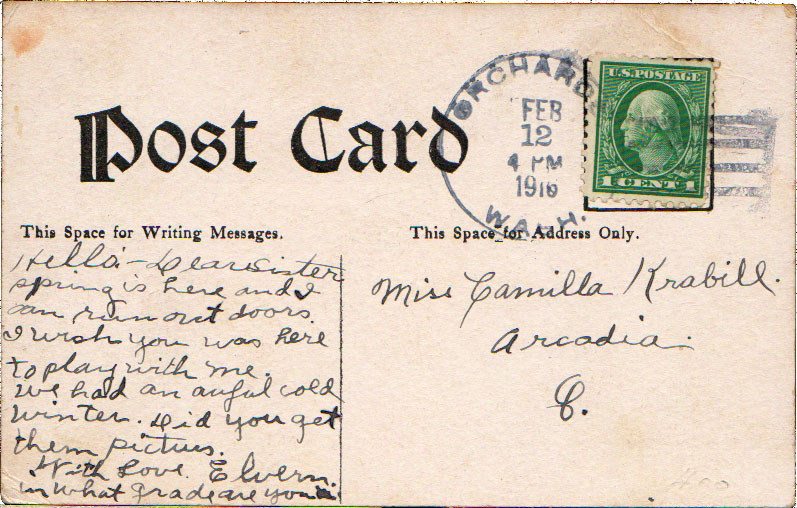 Post Card
ORCHARDS
FEB
12
4 PM
1916
WASH.
U.S. POSTAGE
1 CENT 1
This Space for Writing Messages.
This Space for Address Only.
Hello Dear Sister
spring is here and I
can run out doors.
I wish you was here
to play with me.
we had an awful cold
winter. Did you get
them pictures.
With Love. Elvern.
in what grade are you in
Miss Camilla Krabill.
Arcadia.
O.